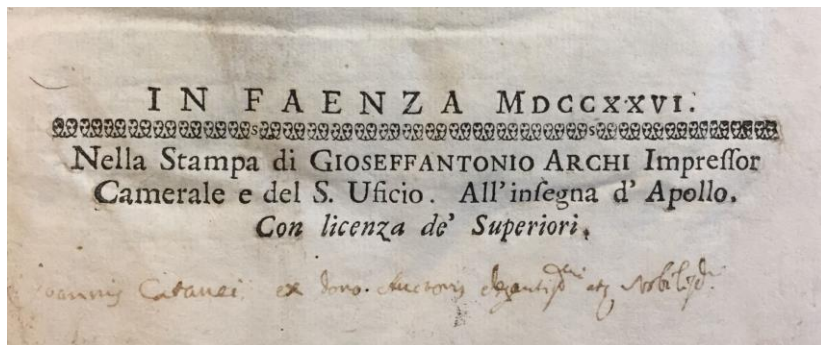 IN FAENZA MDCCXXVI.
Nella Stampa di GIOSEFFANTONIO ARCHI Impreſſor
Camerale e del S. Uficio. All'inſegna d'Apollo.
Con licenza de' Superiori.
Joannis Catanei ex dono Auctoris elegantiſſ.mi atq Nobiliſſ.